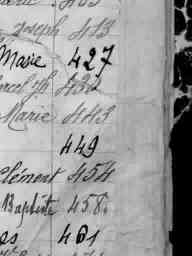 Joseph 413
Marie 427
432
Marie 443
449
Clément 454
Baptiste 458
461